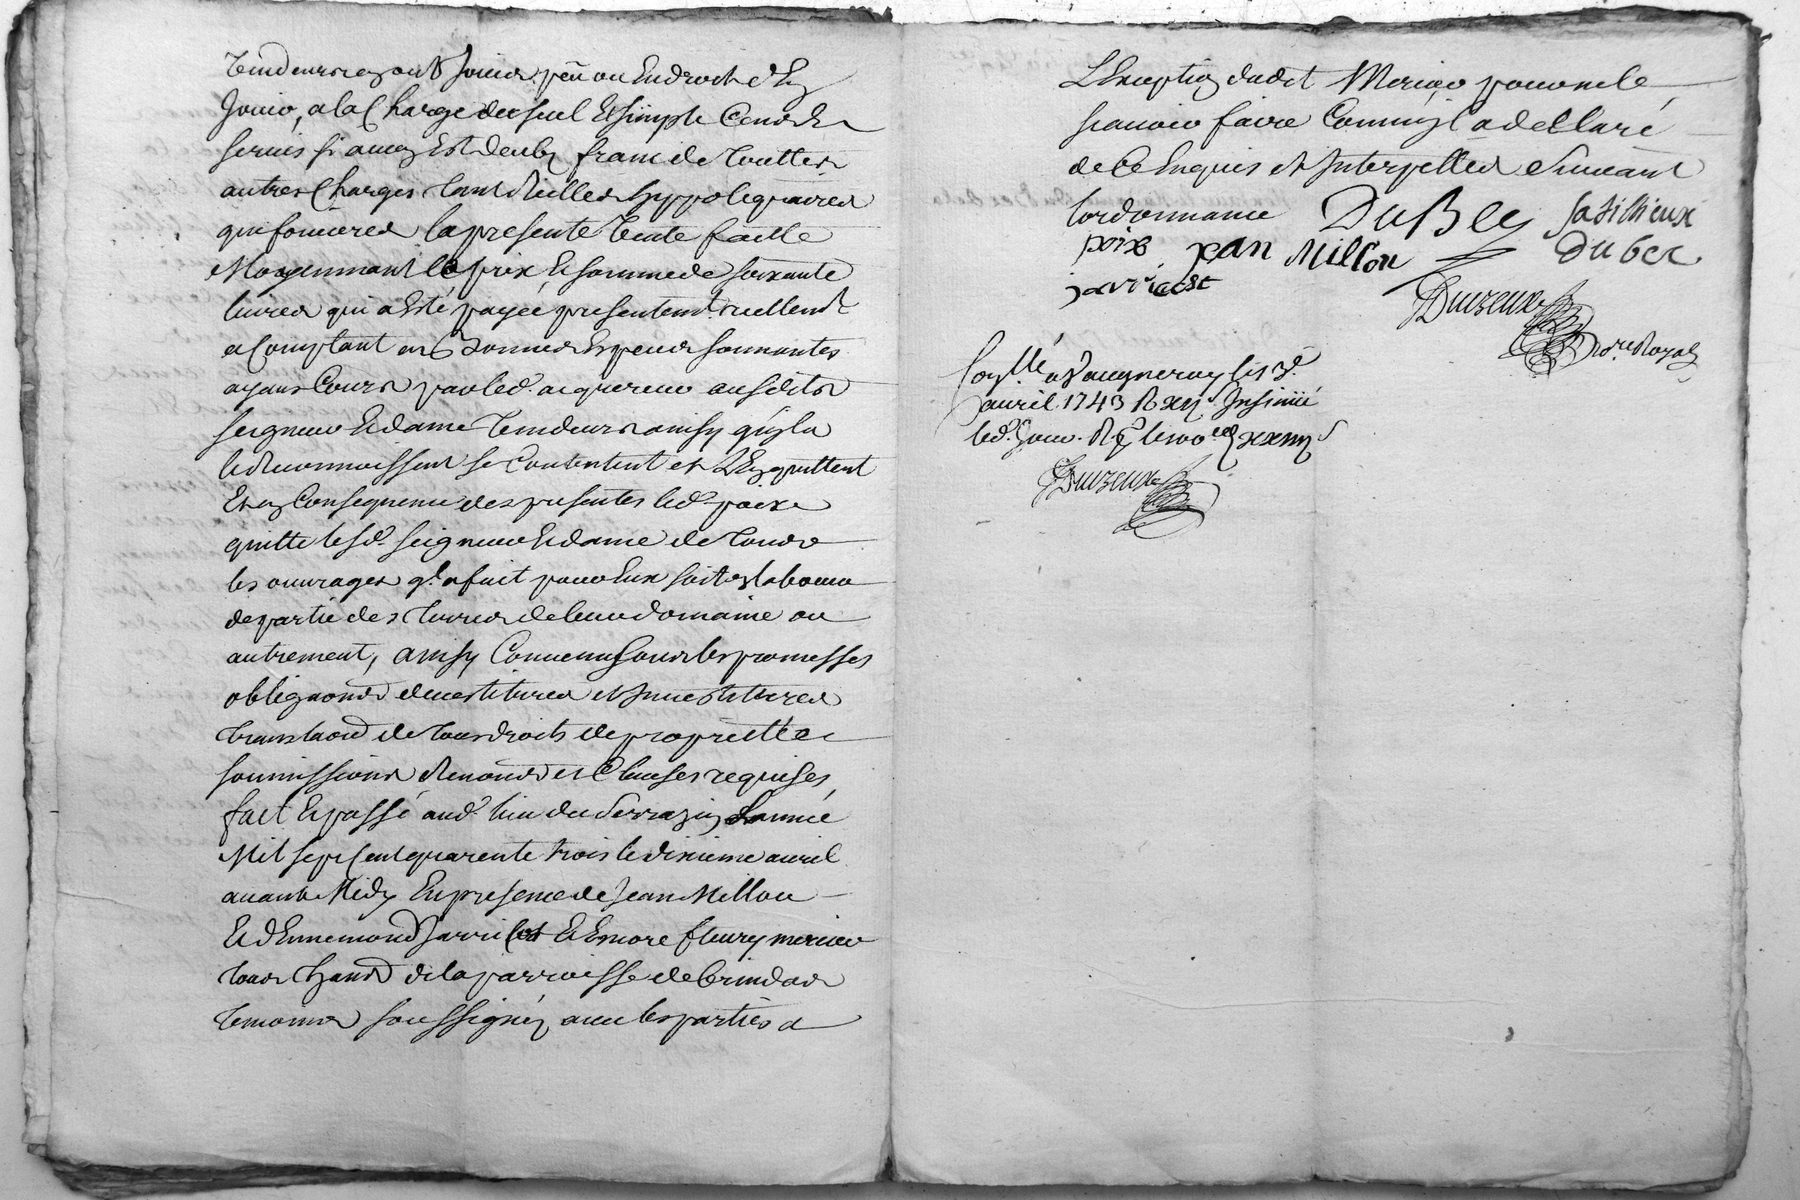 Vendeurs ayants Jouir, peu ou En droit d'En
Jouir, a la Charge du seul Et simple Cens Et
servis si aucun Est deub, franc de Touttes
autres Charges tant Vieilles hyppotequaires
que foncieres la presente Vente faitte
Moyennant le prix Et somme de soixante
livres qui a Esté payée presentemt. reellemt
et Comptant en Bonnes Especes sonnantes
ayans Cours par led. acquereur ausdits
seigneur Et dame Vendeurs ainsy qu'ils
le Reconnoissent se Contentent et L'En quittent
Et en Consequence des presentes led. poixe
quitte lesd. seigneur Et dame de Tous
les ouvrages ql. a fait pour Eux soit en labour
de partie des Terres de leur domaine ou
autrement, ainsy Convenu sous les promesses
obligaons devestitures et Investitures
translaon de Tous droits de propriettés
soumissions Renons et Clauses requises,
fait Et passé aud. lieu du Serrazin L'année
Mil sept Cent quarente trois le dixieme avril
avant Midy En presence de Jean Millou
Et d'Ennemond Jarricot Et Encore fleury mericu
tous habns de la parroisse de brindas
Temoins soussignéz avec les parties a
L'Exception dudit Mericu pour ne le
scavoir faire Comme il a declaré
de Ce Enquis et Interpellé suivant
lordonnance DuBey Satillieux
poix jean Millou Dubec
jarricost
Duizeux
nore. Royal
Conllé a Vaugneray les 13e.
avril 1743 R xij s. Insinué
led. Jour. R
Duizeux